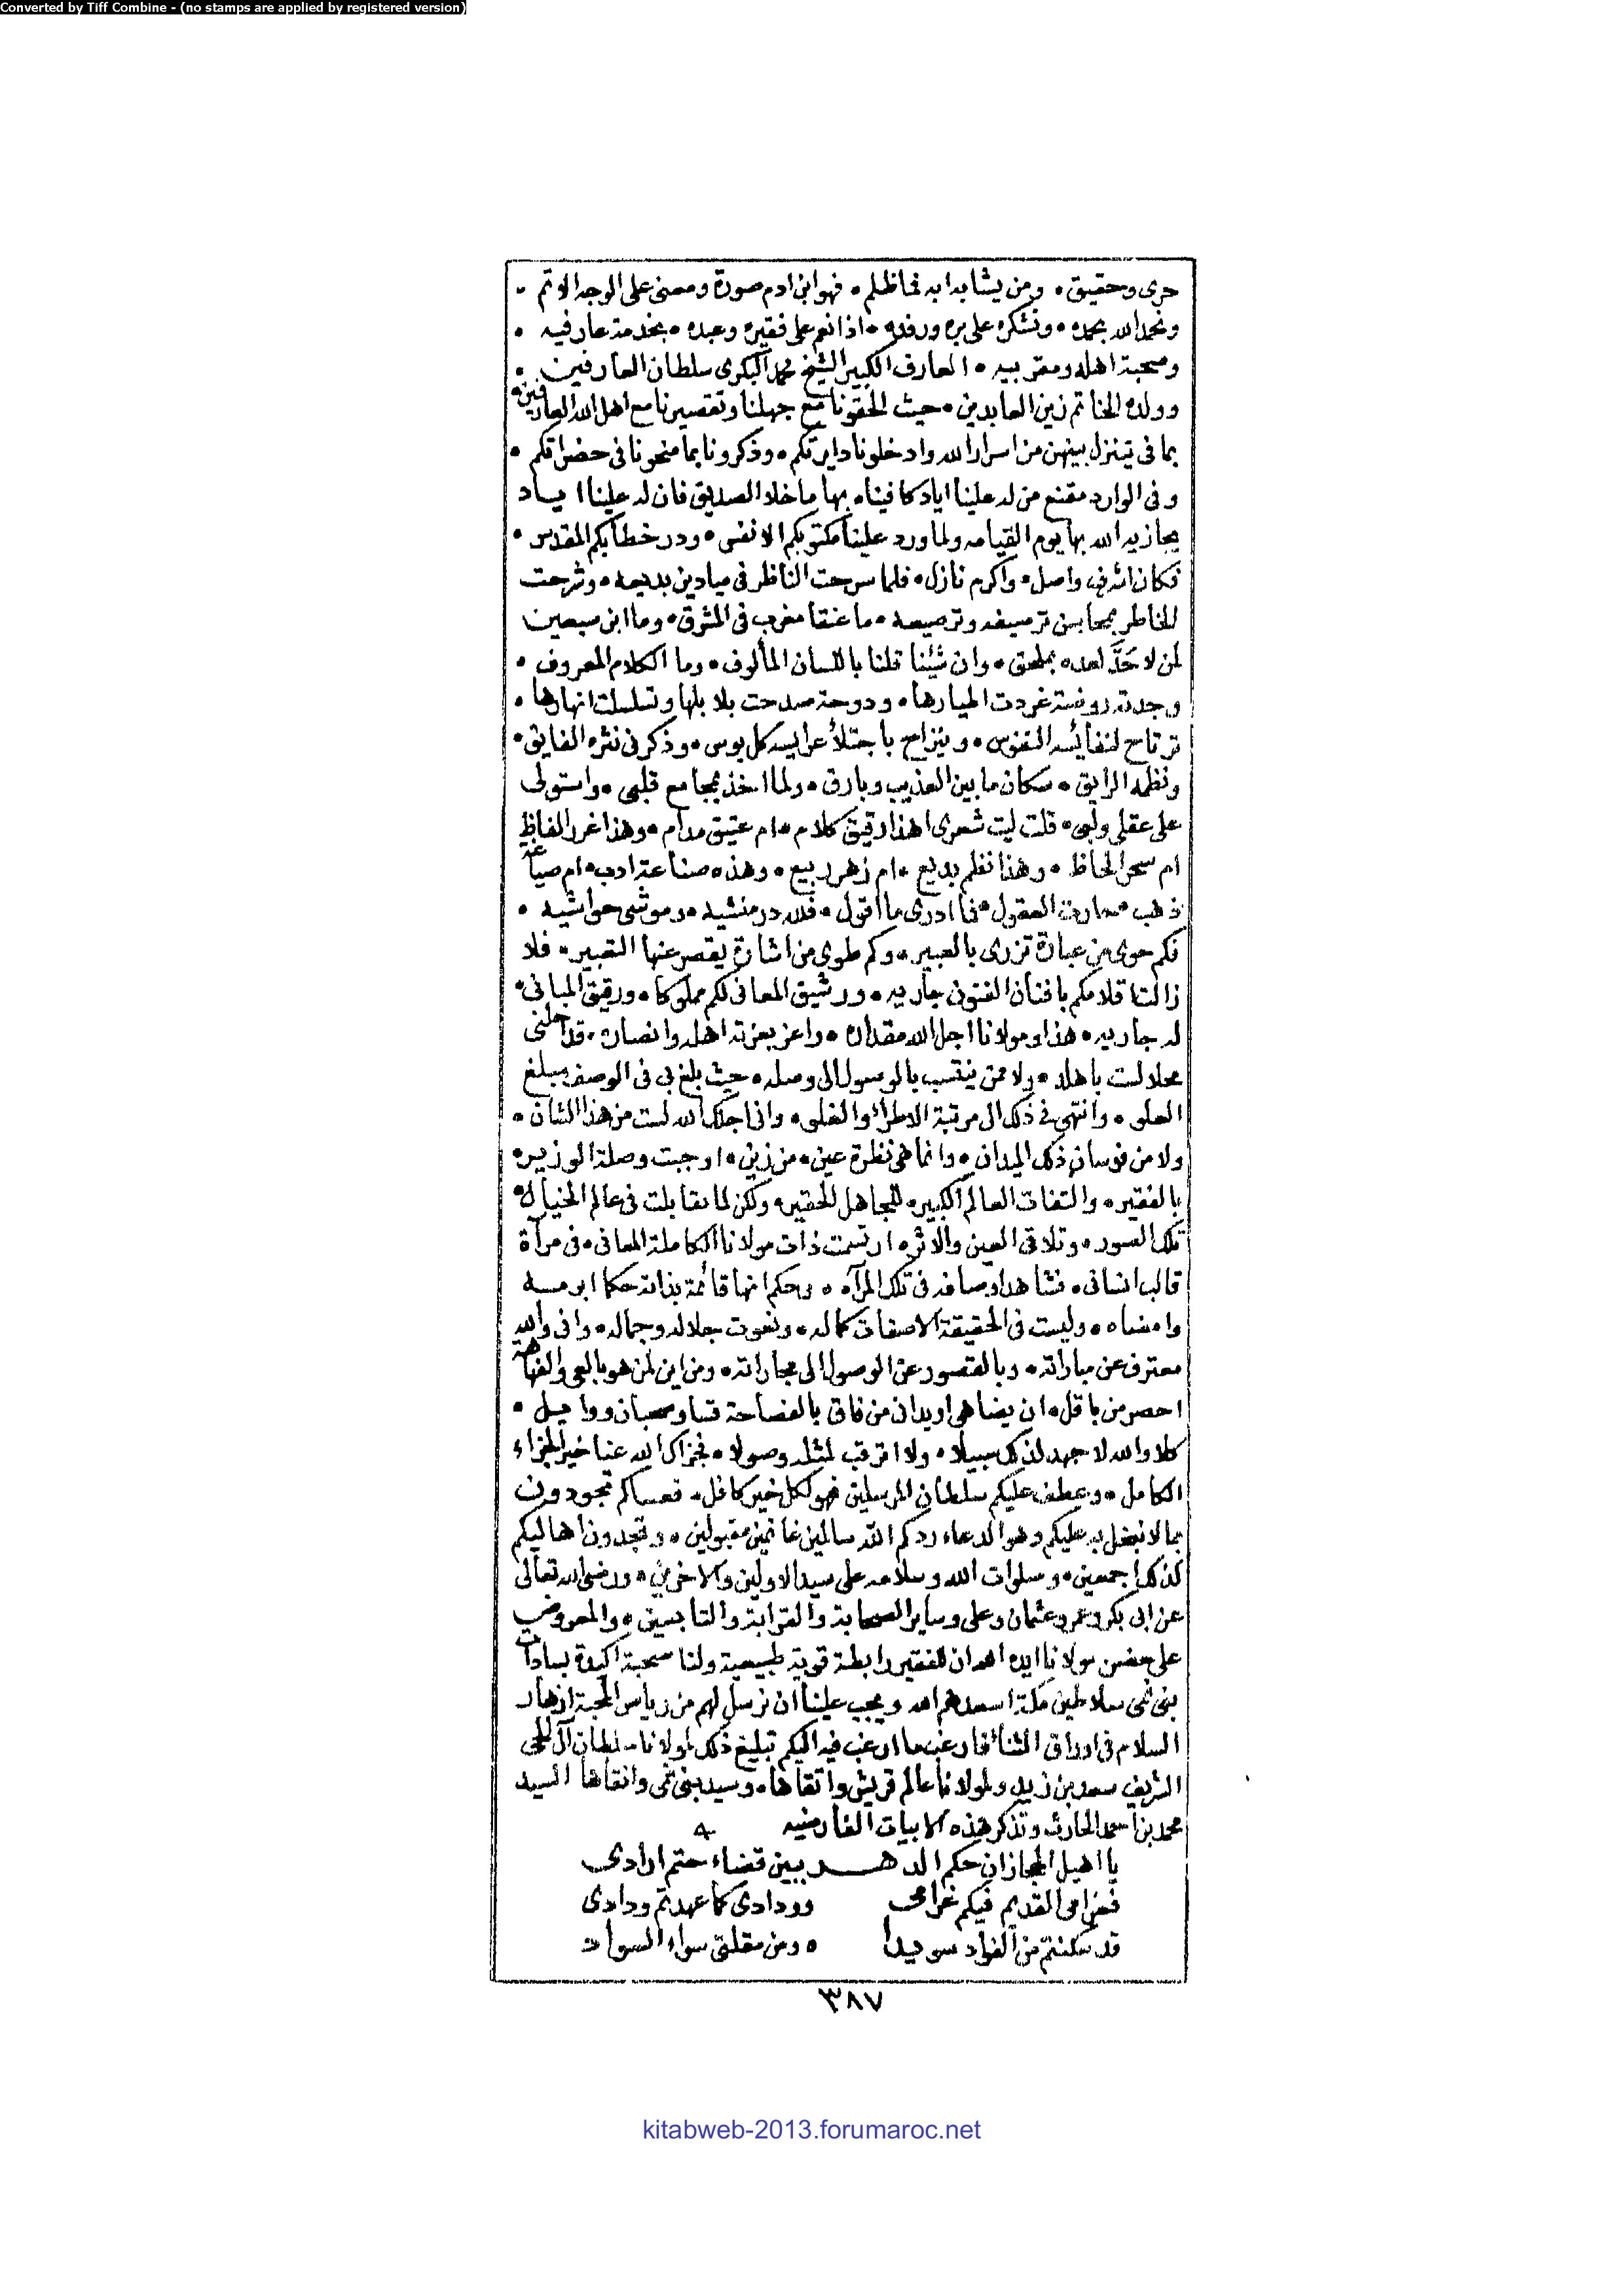 Converted by Tiff Combine - (no stamps are applied by registered version)
حرى وحقيق ۰ ومن يشابه ابه فما ظلم ۰ فهو ابن ادم صورة ومعنى على الوجه الاتم ۰
ونحمد الله بحمده ۰ ونشكره على بره ورفده ۰ اذ انعم على فقيره وعبده ۰ بخدمة عارفيه ۰
وصحبة اهله ومقربيه ۰ العارف الكبير الشيخ محمد البكرى سلطان العارفين ۰
وولده الخاتم زين العابدين ۰ حيث الحقونا مع جهلنا وتقصيرنا مع اهل الله العارفين ۰
بما فى تينزل بينهن من اسرار الله وادخلونا دايرتكم ۰ وذكرونا بما منحونا فى حضراتكم ۰
وفى الوارد مقنع من له علينا اياد كافيناه بها ما خلا الصديق فان له علينا اياد
يجازيه الله بها يوم القيامه ولما ورد علينا مكتوبكم الانفس ۰ ودر خطابكم المقدس ۰
فكان اشرف واصل ۰ واكرم نازل ۰ فلما سرحت الناظر فى ميادين بديعه ۰ وشرحت
الخاطر بمحاسن ترصيفه وترصيعه ۰ ما عنقا مغرب فى المشرق ۰ وما ابن سبعين
لمن لا حَدَّ لعده بملحق ۰ وان شئنا قلنا باللسان المألوف ۰ وما الكلام المعروف ۰
وجدته روضة غردت اطيارها ۰ ودوحة صدحت بلابلها وتسلسلت انهارها ۰
ترتاح لنفائسه النفوس ۰ وينزاح باجتلاء عرايسه كل بوس ۰ وذكر فى نثره الفايق ۰
ونظمه الرايق ۰ سكان ما بين العذيب وبارق ۰ ولما اخذ بمجامع قلبى ۰ واستولى
على عقلى ولبى ۰ قلت ليت شعرى اهذا رقيق كلام ۰ ام عتيق مدام ۰ وهذا غرر الفاظ
ام سحر الحاظ ۰ وهذا نظم بديع ۰ ام زهر ربيع ۰ وهذه صناعة ادب ۰ ام صياغة
ذهب ۰ حارت العقول ۰ فما ادرى ما اقول ۰ فلله در منشيه ۰ وموشى حواشيه ۰
فكم حوى من عبارة تزرى بالعبير ۰ وكم طوى من اشارة يقصر عنها التعبير ۰ فلا
زالت اقلامكم بافنان الفنون جاريه ۰ ورشيق المعانى لكم مملوكا ۰ ورقيق المبانى ۰
له جاريه ۰ هذا ومولانا اجل الله مقداره ۰ واعز بعزته اهله وانصاره ۰ قد احلنى
محلا لست باهله ۰ ولا ممن ينتسب بالوصول الى وصله ۰ حيث بلغ بى فى الوصف مبلغ
العلو ۰ وانتهى فى ذلك الى مرتبة الاطراء والغلو ۰ وانى اجلك الله لست من هذا الشان ۰
ولا من فرسان ذلك الميدان ۰ وانما هى نظرة عين ۰ من زين ۰ اوجبت وصلة الوزير ۰
بالفقير ۰ والتفات العالم الكبير ۰ للجاهل الحقير ۰ ولكن لما تقابلت فى عالم الخيال ۰
تلك الصور ۰ وتلاقى العين والاثر ۰ ارتسمت ذات مولانا الكاملة المعانى ۰ فى مرآة
قالب انسانى ۰ فشاهد اوصافه فى تلك المرآه ۰ وحكم انها قائمة بذاته حكما ابرمه
وامضاه ۰ وليست فى الحقيقة الا صفات كماله ۰ ونعوت جلاله وجماله ۰ وانى والله
معترف عن مباراته ۰ وبالقصور عن الوصول الى مجاراته ۰ ومن اين لمن هو بالعى والفهاهة
احصر من باقل ۰ ان يضاهى او يدانى من فاق بالفصاحة قسا وسحبان ووايل ۰
كلا والله لا جهد لذلك سبيلا ۰ ولا اترقب لمثله وصولا ۰ فجزاك الله عنا خير الجزاء
الكامل ۰ وعطف عليكم سلطان المرسلين فهو لكل خير كافل ۰ فعساكم تجودون
بما لا نبخل به عليكم وهو الدعاء ردكم الله سالمين غانمين مقبولين ۰ وتجدون اهاليكم
كذلك اجمعين ۰ وصلوات الله وسلامه على سيد الاولين والاخرين ۰ ورضى الله تعالى
عن ابى بكر وعمر وعثمان وعلى وساير الصحابة والقرابة والتابعين ۰ والمعروض
على حضرة مولانا ايده الله ان للفقير رابطة قوية طبيعية ولنا صحبة اكيدة بسادات
بنى نمى سلاطين مكة اسعدهم الله ويجب علينا ان نرسل لهم من رياض المحبة ازهار
السلام فى اوراق الثناء فارغب ما ارغب فيه اليكم تبليغ ذلك لمولانا سلطان آل
الشريف سعد بن زيد ولمولانا عالم قريش واتقاها ۰ وسيد بنى نمى وانقاها السيد
محمد بن احمد الحارث ونذكر هذه الابيات الفارضيه
يا اهيل الحجاز ان حكم الدهـر ببين قضاء حتم ارادى
فغرامى القديم فيكم غرامى ووادادى كما عهدتم ودادى
قد سكنتم من الفواد سويدا ۰ ومن مقلتى سواء السواد
٣٨٧
kitabweb-2013.forumaroc.net